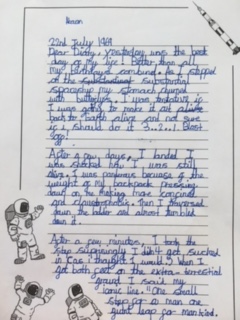 22nd July 1969
Dear Diary, yesterday was the best
day of my life! Better than all
my birthdays combined. As I stepped
on the substantial
spaceship my stomach churned
with butterflies. I was tentative if
I was going to make it out alive
back to Earth alive and not sure
if I should do it 3..2..1.. Blast
off!
After a few days, I landed. I
was shocked how I was still
alive. I was ponderous because of the
weight of my backpack pressing
down on me making me
and claustrophobic. Then I traversed
down the ladder and almost tumbled
down it.
After a few minutes, I took the
step surprisingly I didn't get sucked
in (as I thought I would). When I
got both feet on the extra-terrestrial
ground I said my
iconic line. "One small
step for a man one
giant leap for mankind.